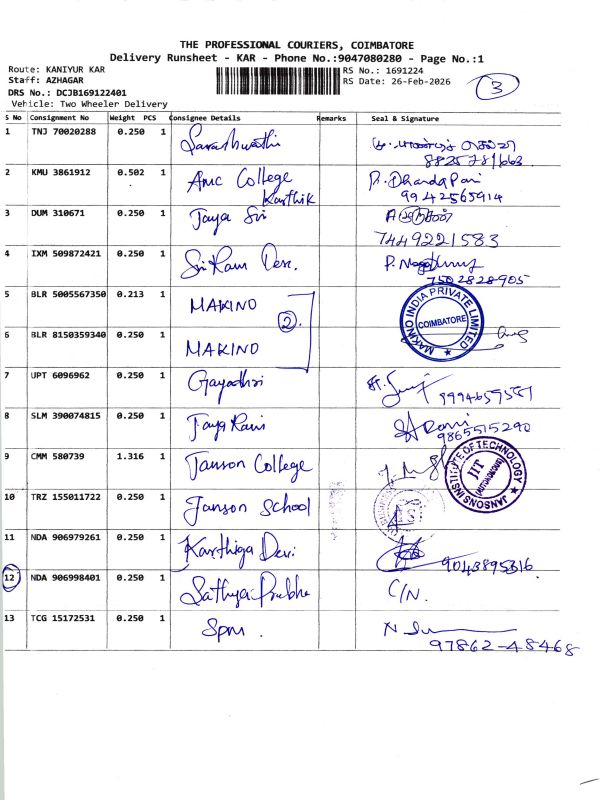 THE PROFESSIONAL COURIERS, COIMBATORE
Delivery Runsheet - KAR - Phone No.:9047080280 - Page No.:1
Route: KANIYUR KAR
RS No.: 1691224
Staff: AZHAGAR
RS Date: 26-Feb-2026
3
DRS No.: DCJB169122401
Vehicle: Two Wheeler Delivery
S No Consignment No Weight PCS Consignee Details Remarks Seal & Signature
1 TNJ 70020288 0.250 1 Sarashwathi
8825781663
2 KMU 3861912 0.502 1 AMC College P. Dhandapani
Karthik 9942565914
3 DUM 310671 0.250 1 Jaya Sri
7449221583
4 IXM 509872421 0.250 1 Sri Ram
7502828905
5 BLR 5005567350 0.213 1 MAKINO
2.
MAKINO INDIA PRIVATE LIMITED
COIMBATORE
6 BLR 8150359340 0.250 1 MAKINO
7 UPT 6096962 0.250 1 Gayathri
8 SLM 390074815 0.250 1 Jaya Rani Rani
9865515290
9 CMM 580739 1.316 1 Janson College
JANSONS INSTITUTE OF TECHNOLOGY
JIT
(AUTONOMOUS)
10 TRZ 155011722 0.250 1 Janson School
11 NDA 906979261 0.250 1 Karthiga Devi
9043895316
12 NDA 906998401 0.250 1 Sathya Prabha C/N.
13 TCG 15172531 0.250 1 Spm.
97862-48468